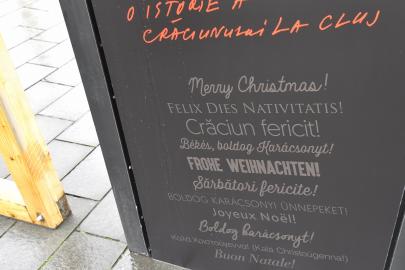 O ISTORIE A
CRĂCIUNULUI LA CLUJ
Merry Christmas!
FELIX DIES NATIVITATIS!
Crăciun fericit!
Békés, boldog Karácsonyt!
FROHE WEIHNACHTEN!
Sărbători fericite!
BOLDOG KARÁCSONYI ÜNNEPEKET!
Joyeux Noël!
Boldog karácsonyt!
Καλά Χριστούγεννα! (Kala Christougenna!)
Buon Natale!